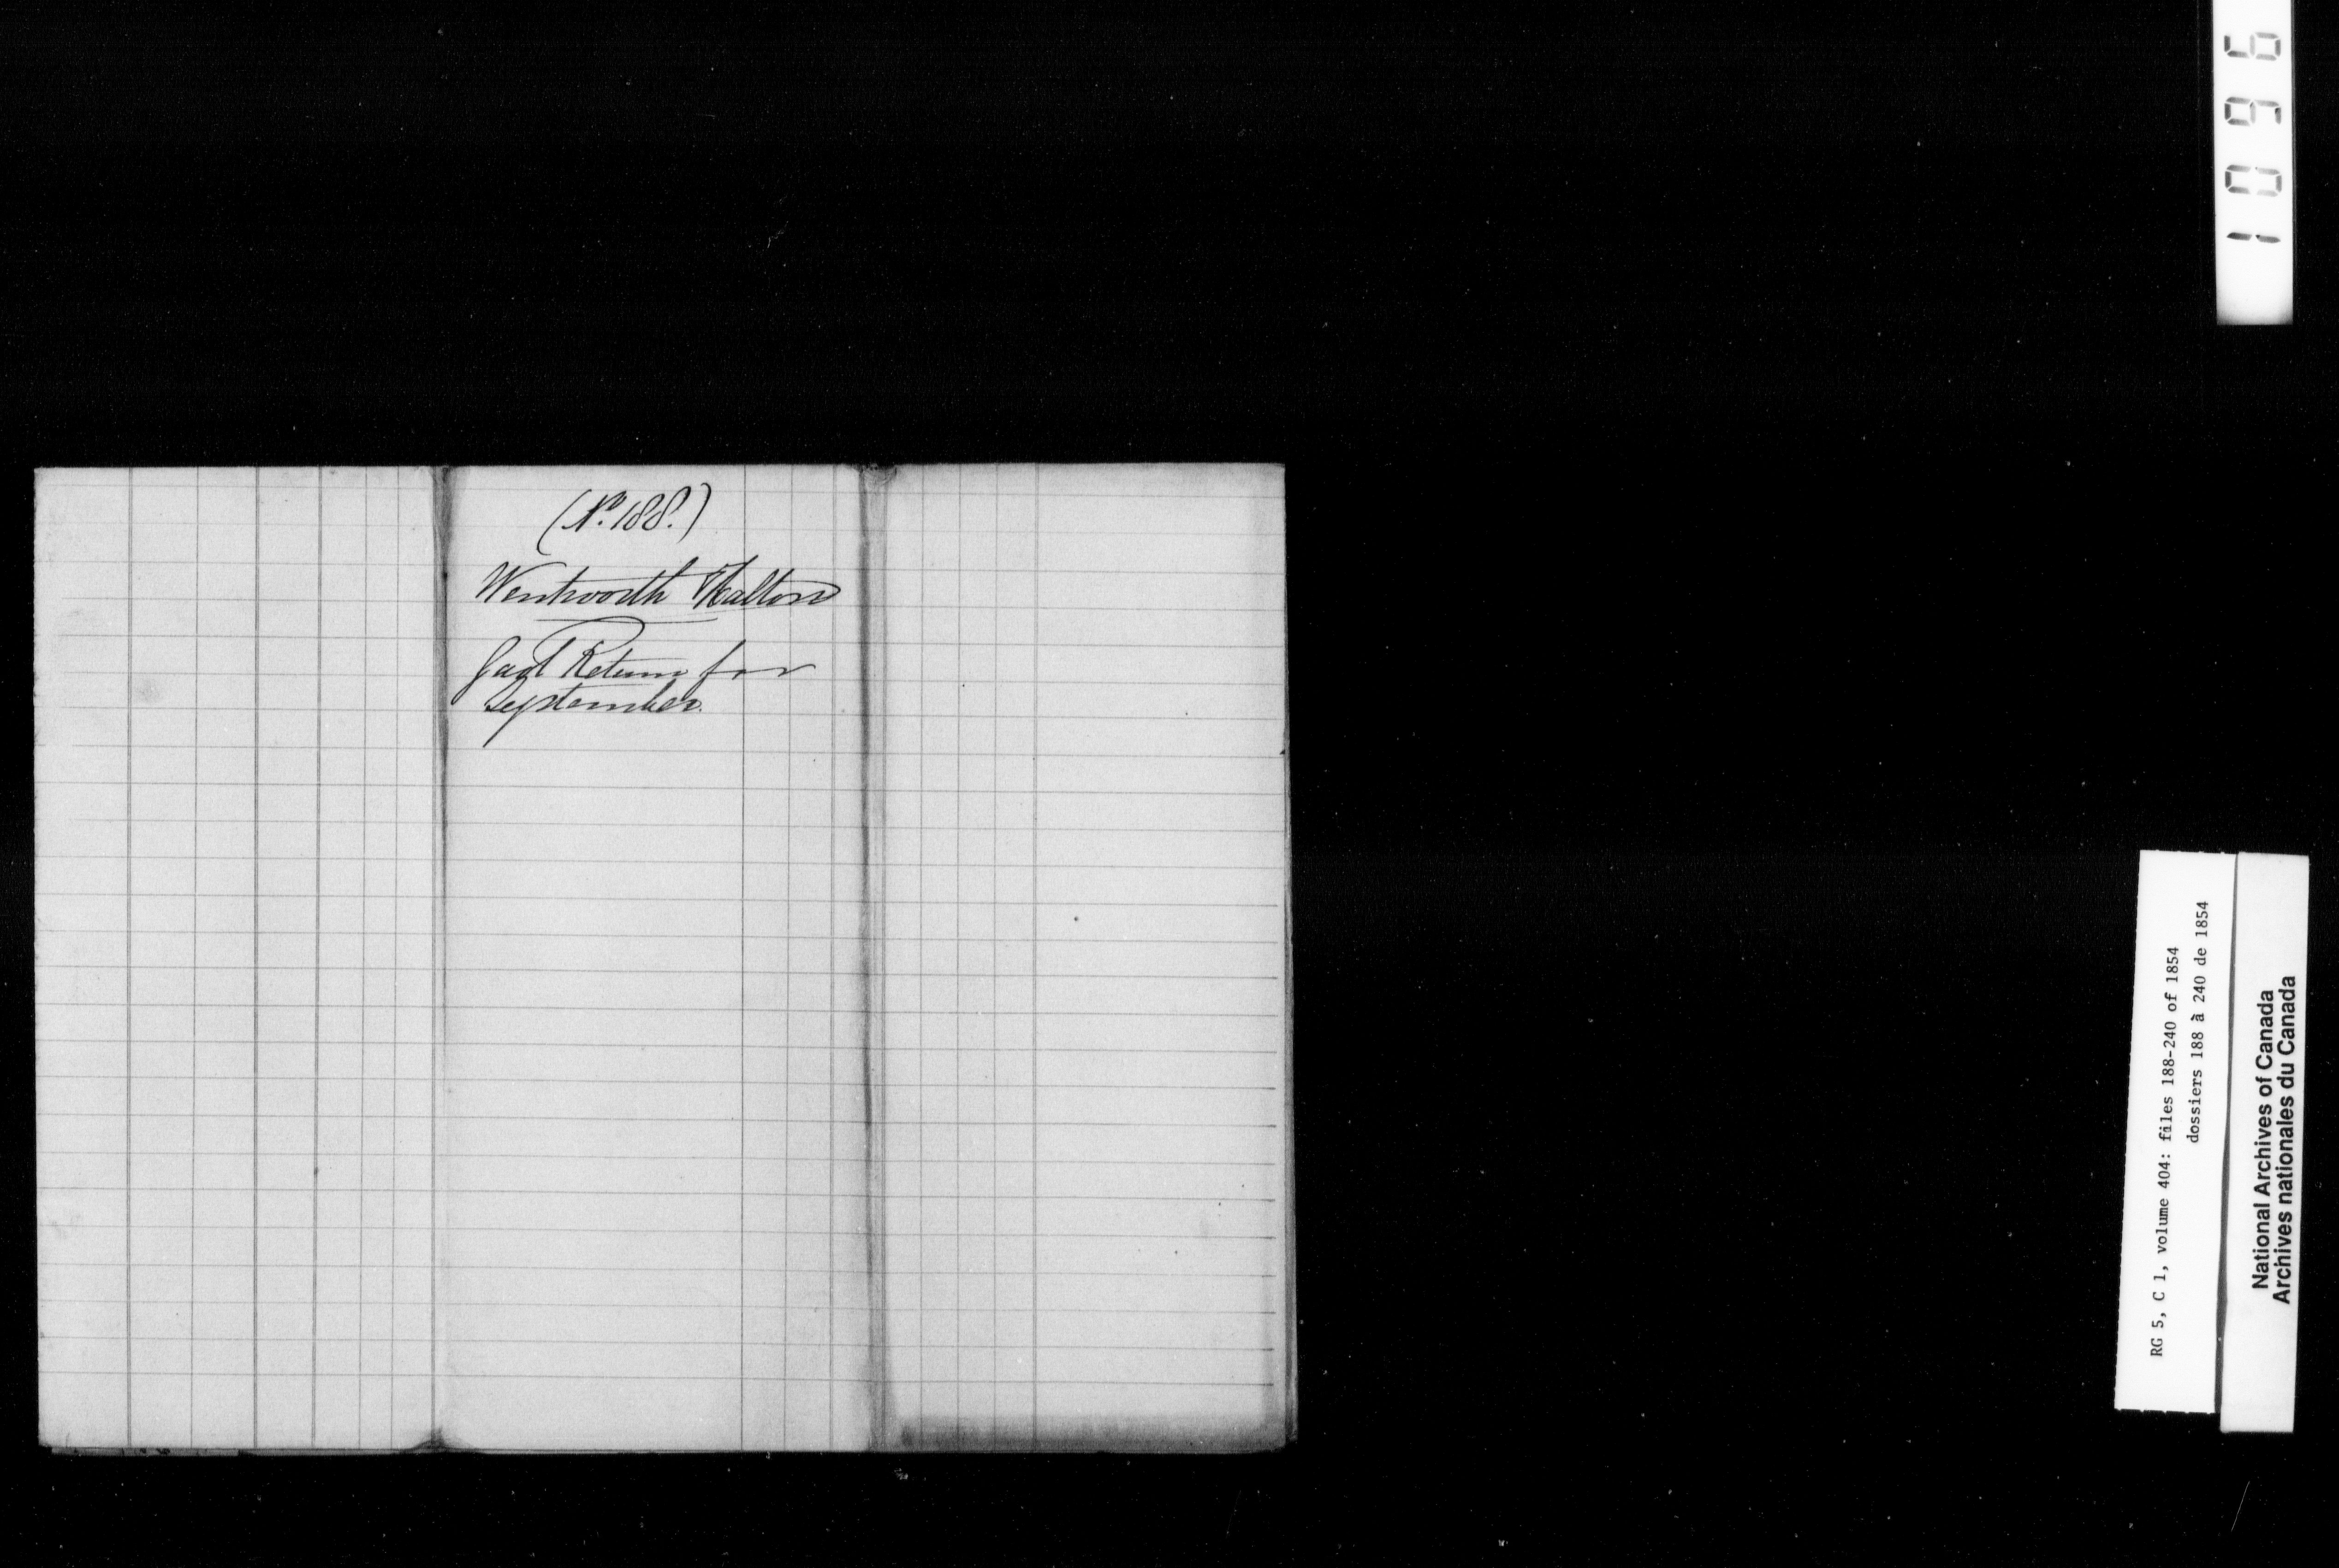 (No. 188.)
Wentworth & Halton
Gaol Return for
September.
1096
RG 5, C 1, volume 404: files 188-240 of 1854
dossiers 188 à 240 de 1854
National Archives of Canada
Archives nationales du Canada